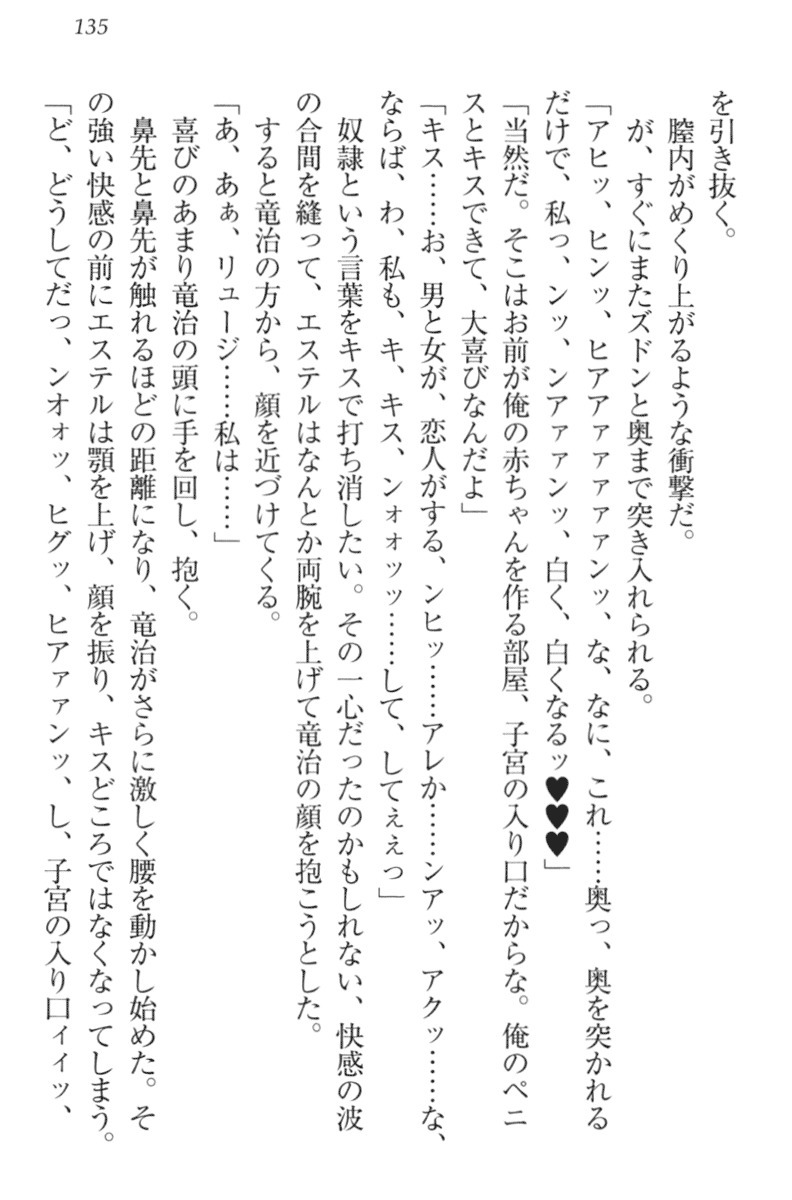 135
を引き抜く。
膣内がめくり上がるような衝撃だ。
が、すぐにまたズドンと奥まで突き入れられる。
「アヒッ、ヒンッ、ヒアアァァァァァンッ、な、なに、これ……奥っ、奥を突かれる
だけで、私っ、ンッ、ンアァァンッ、白く、白くなるッ♥♥♥」
「当然だ。そこはお前が俺の赤ちゃんを作る部屋、子宮の入り口だからな。俺のペニ
スとキスできて、大喜びなんだよ」
「キス……お、男と女が、恋人がする、ンヒッ……アレか……ンアッ、アクッ……な、
ならば、わ、私も、キ、キス、ンォォッッ……して、してぇぇっ」
奴隷という言葉をキスで打ち消したい。その一心だったのかもしれない、快感の波
の合間を縫って、エステルはなんとか両腕を上げて竜治の顔を抱こうとした。
すると竜治の方から、顔を近づけてくる。
「あ、あぁ、リュージ……私は……」
喜びのあまり竜治の頭に手を回し、抱く。
鼻先と鼻先が触れるほどの距離になり、竜治がさらに激しく腰を動かし始めた。そ
の強い快感の前にエステルは顎を上げ、顔を振り、キスどころではなくなってしまう。
「ど、どうしてだっ、ンオォッ、ヒグッ、ヒアァァンッ、し、子宮の入り口ィィッ、